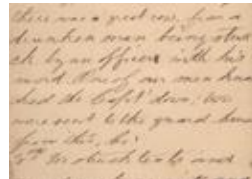 there was a great row, from a
drunken man being struc
ck by an officer with his
sword. One of our men knoc
ked the Capt down, two
were sent to the guard house
from this, he
4th We struck tents and